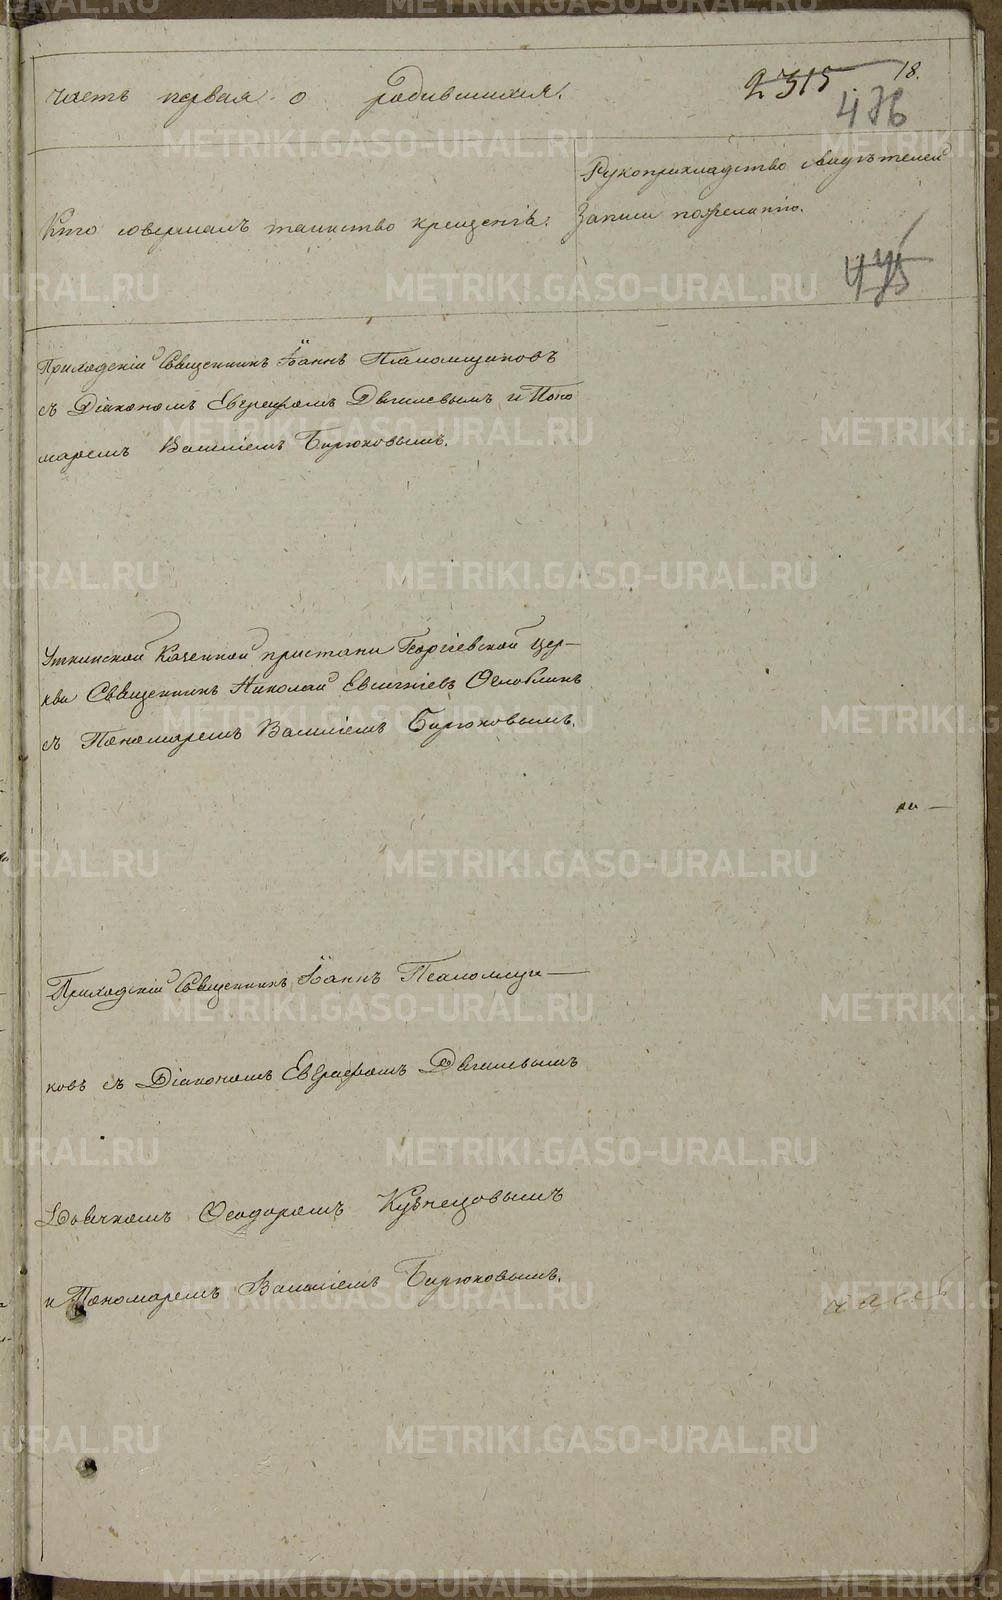 часть первая о родившихся.
2315
18.
476
Кто совершалъ таинство крещенія:
Рукоприкладство свидѣтелей
записи по желанію.
475
Приходскій Священникъ Іоаннъ Псаломщиковъ
съ Діакономъ Евграфомъ Дягилевымъ и Поно
маремъ Василіемъ Бирюковымъ.
Уткинской Казенной пристани Георгіевской Цер-
кви Священникъ Николай Евгеніевъ Оглоблинъ
съ Пономаремъ Василіемъ Бирюковымъ.
Приходскій Священникъ Іоаннъ Псаломщи-
ковъ съ Діакономъ Евграфомъ Дягилевымъ
Дьячкомъ Ѳеодоромъ Кузнецовымъ
и Пономаремъ Василіемъ Бирюковымъ.
METRIKI.GASO-URAL.RU